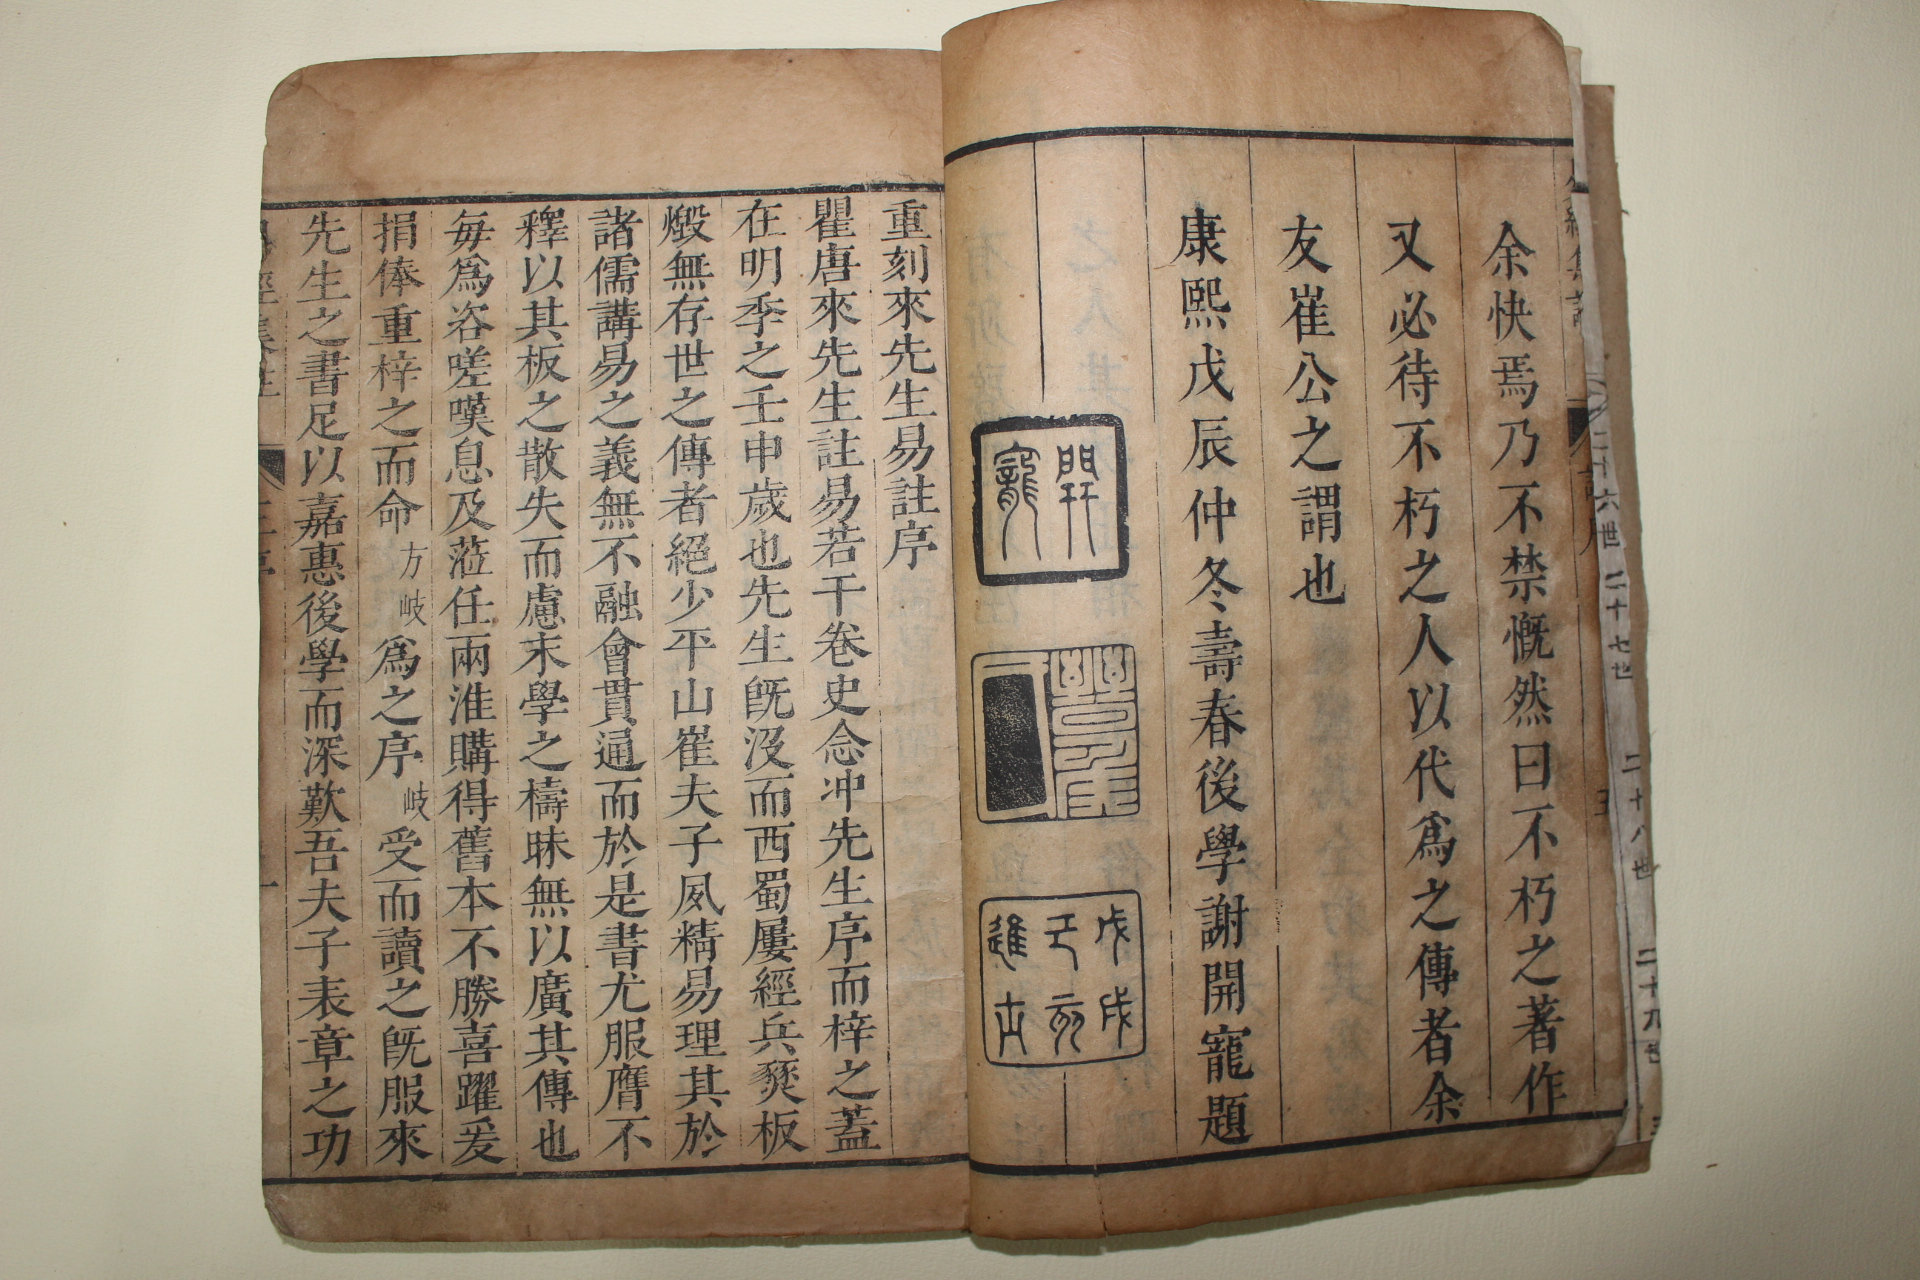 余快焉乃不禁慨然曰不朽之著作
又必待不朽之人以代為之傳者余
友崔公之謂也
康熙戊辰仲冬壽春後學謝開寵題
開寵
戊戌
己亥
進士
重刻來先生易註序
瞿唐來先生註易若干卷史念冲先生序而梓之蓋
在明季之壬申歲也先生旣沒而西蜀屢經兵燹板
燬無存世之傳者絕少平山崔夫子夙精易理其於
諸儒講易之義無不融會貫通而於是書尤服膺不
釋以其板之散失而慮末學之檮昧無以廣其傳也
每為咨嗟嘆息及蒞任兩淮購得舊本不勝喜躍爰
捐俸重梓之而命方岐為之序岐受而讀之旣服來
先生之書足以嘉惠後學而深歎吾夫子表章之功
易經集註
二十六世
二十七世
二十八世
二十九世